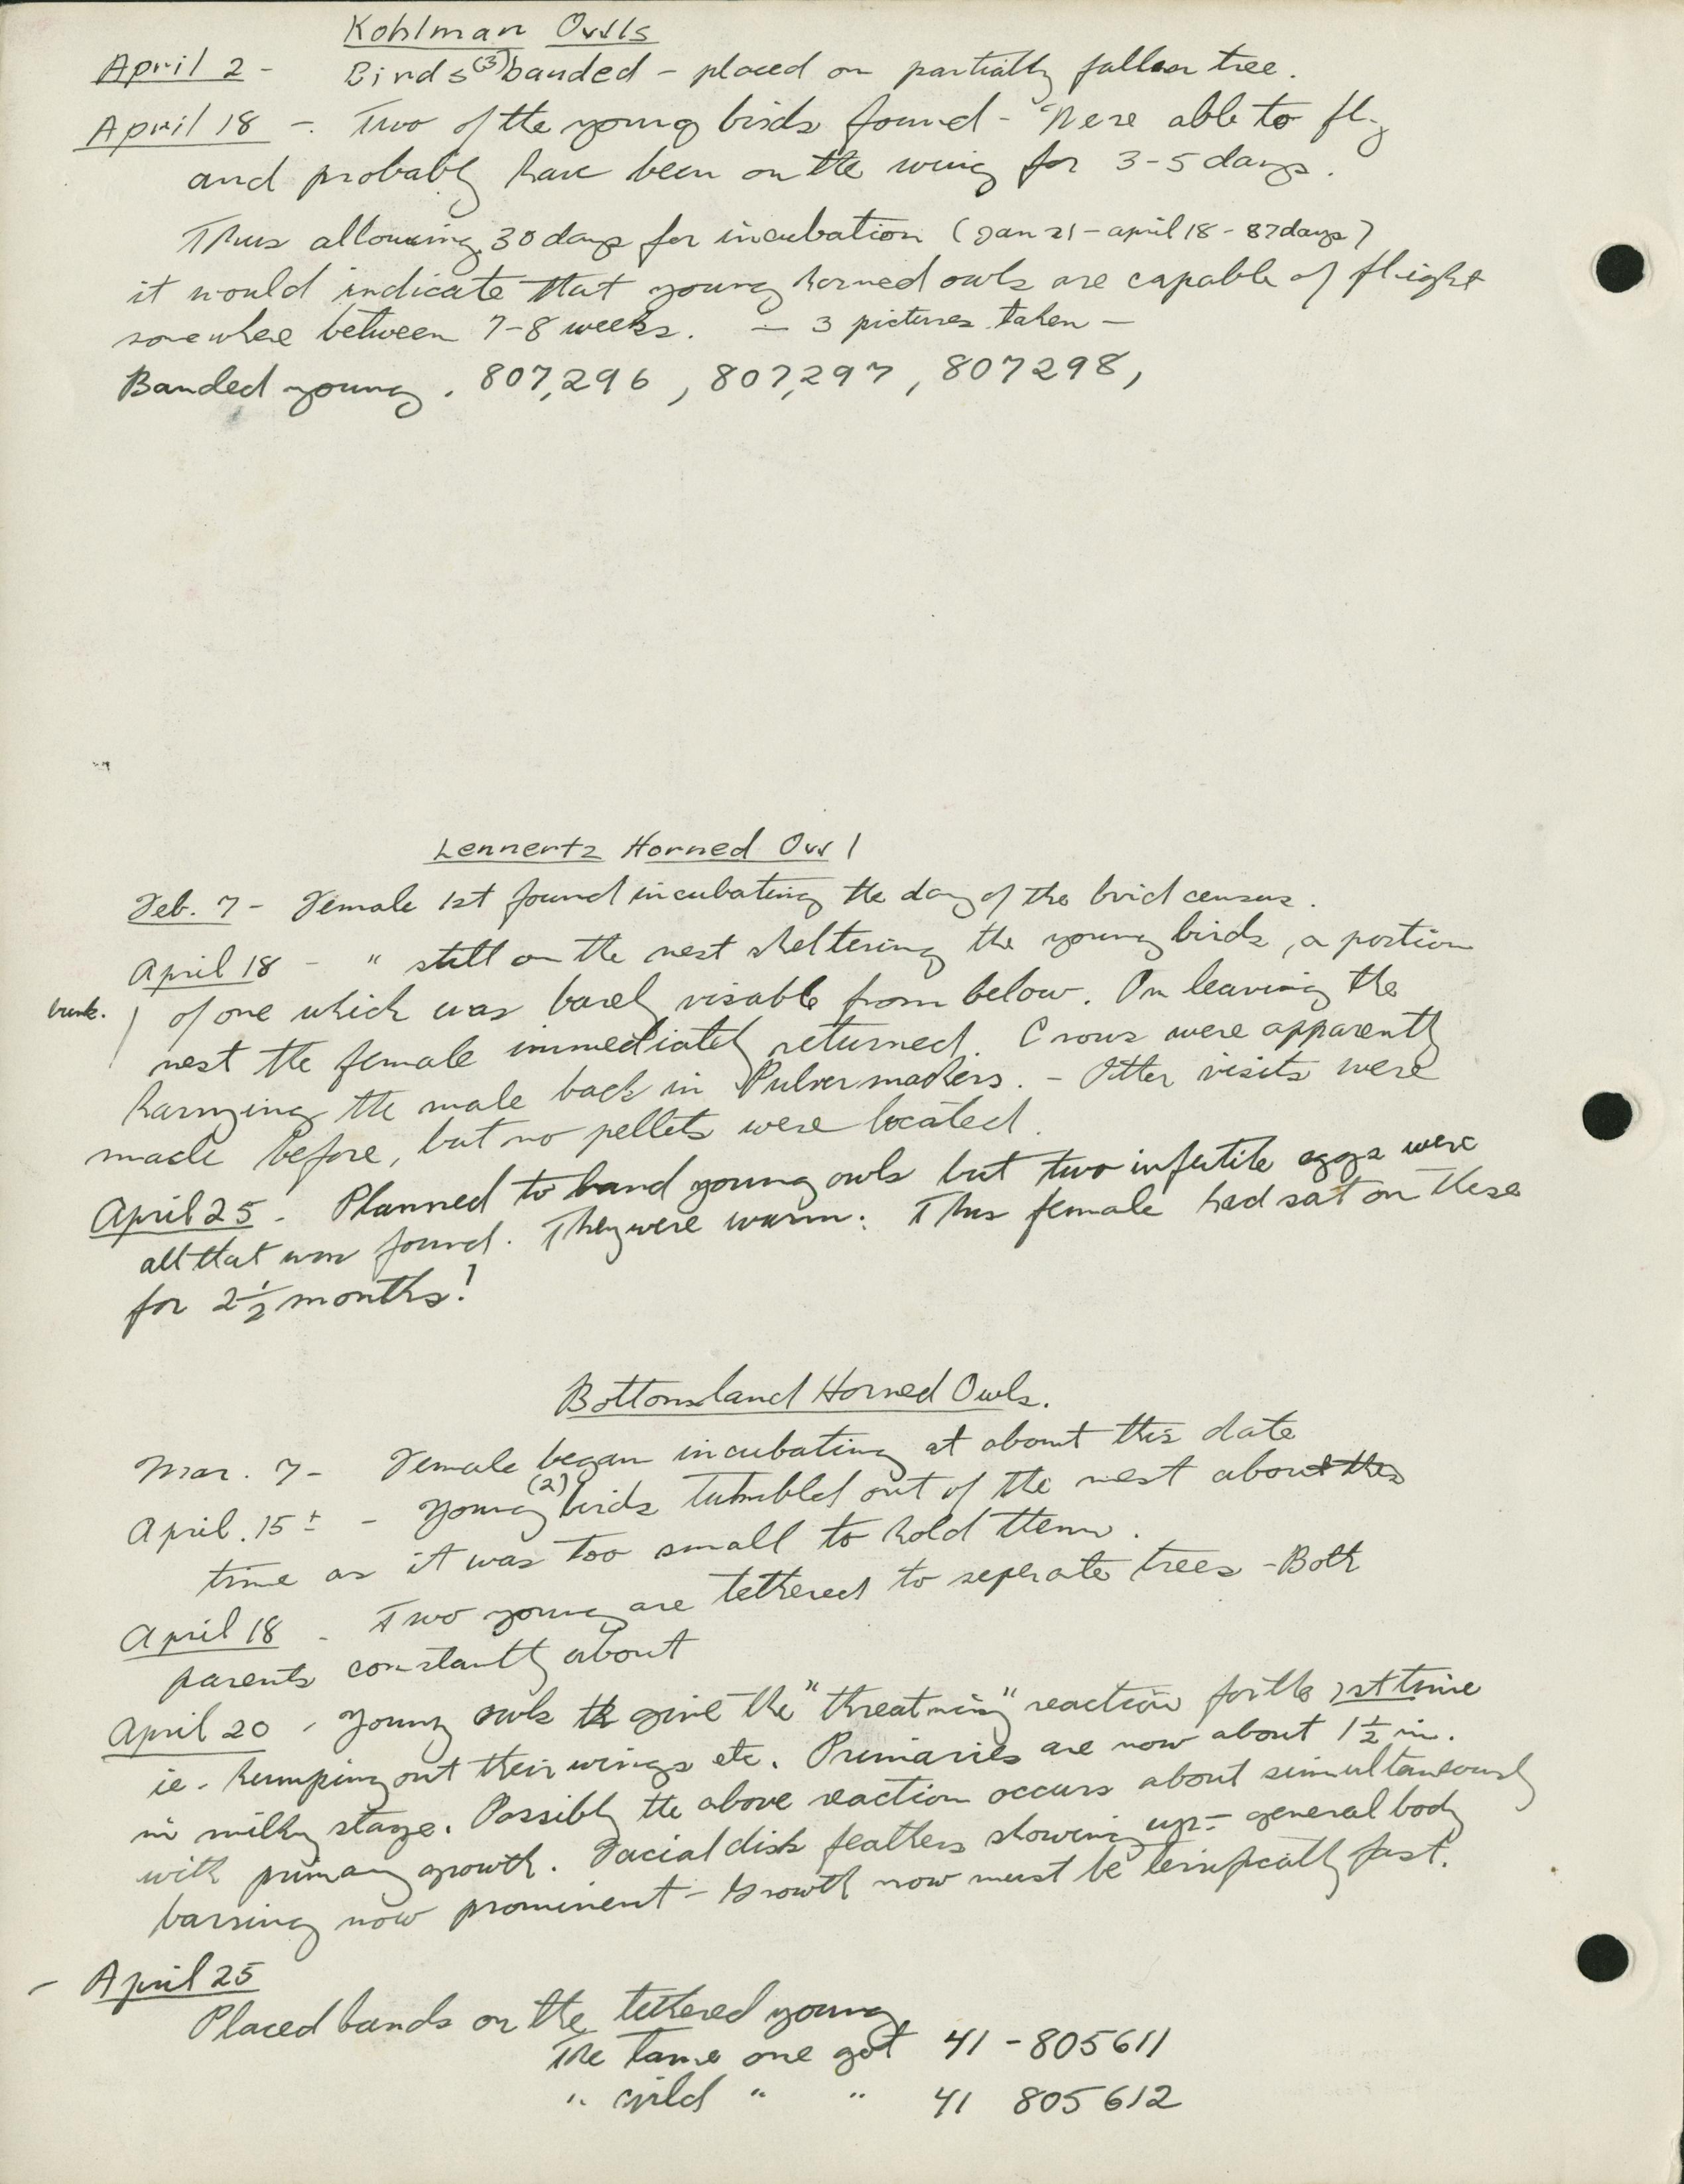 Kohlman Owls
April 2 - Birds (3) banded - placed on partially fallen tree.
April 18 - Two of the young birds found - Were able to fly
and probably have been on the wing for 3-5 days.
Thus allowing 30 days for incubation (Jan 21 - april 18 - 87 days)
it would indicate that young horned owls are capable of flight
somewhere between 7-8 weeks. - 3 pictures taken -
Banded young. 807,296, 807,297, 807298,
Lennertz Horned Owl
Feb. 7 - Female 1st found incubating the day of the bird census.
April 18 - " still on the nest sheltering the young birds, a portion
bunk. / of one which was barely visable from below. On leaving the
nest the female immediately returned. Crows were apparently
harrying the male back in Pulvermachers. - Other visits were
made before, but no pellets were located.
April 25. Planned to band young owls but two infertile eggs were
all that was found. They were warm. Thus female had sat on these
for 2 1/2 months!
Bottomsland Horned Owls.
Mar. 7 - Female began incubating at about this date
April. 15 ± - Young (2) birds tumbled out of the nest about this
time as it was too small to hold them.
April 18 - Two young are tethered to seperate trees - Both
parents constantly about
April 20 - Young owls give the "threatning" reaction for the 1st time
ie - humping out their wings etc. Primaries are now about 1 1/2 in.
in milky stage. Possibly the above reaction occurs about simultaneously
with primary growth. Facial disk feathers showing up - general body
barring now prominent - Growth now must be terrifically fast.
- April 25
Placed bands on the tethered young
The tame one got 41 - 805611
" wild " " 41 805612